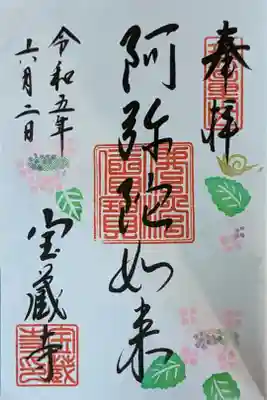 奉拝
阿弥陀如来
令和五年
六月二日
宝蔵寺